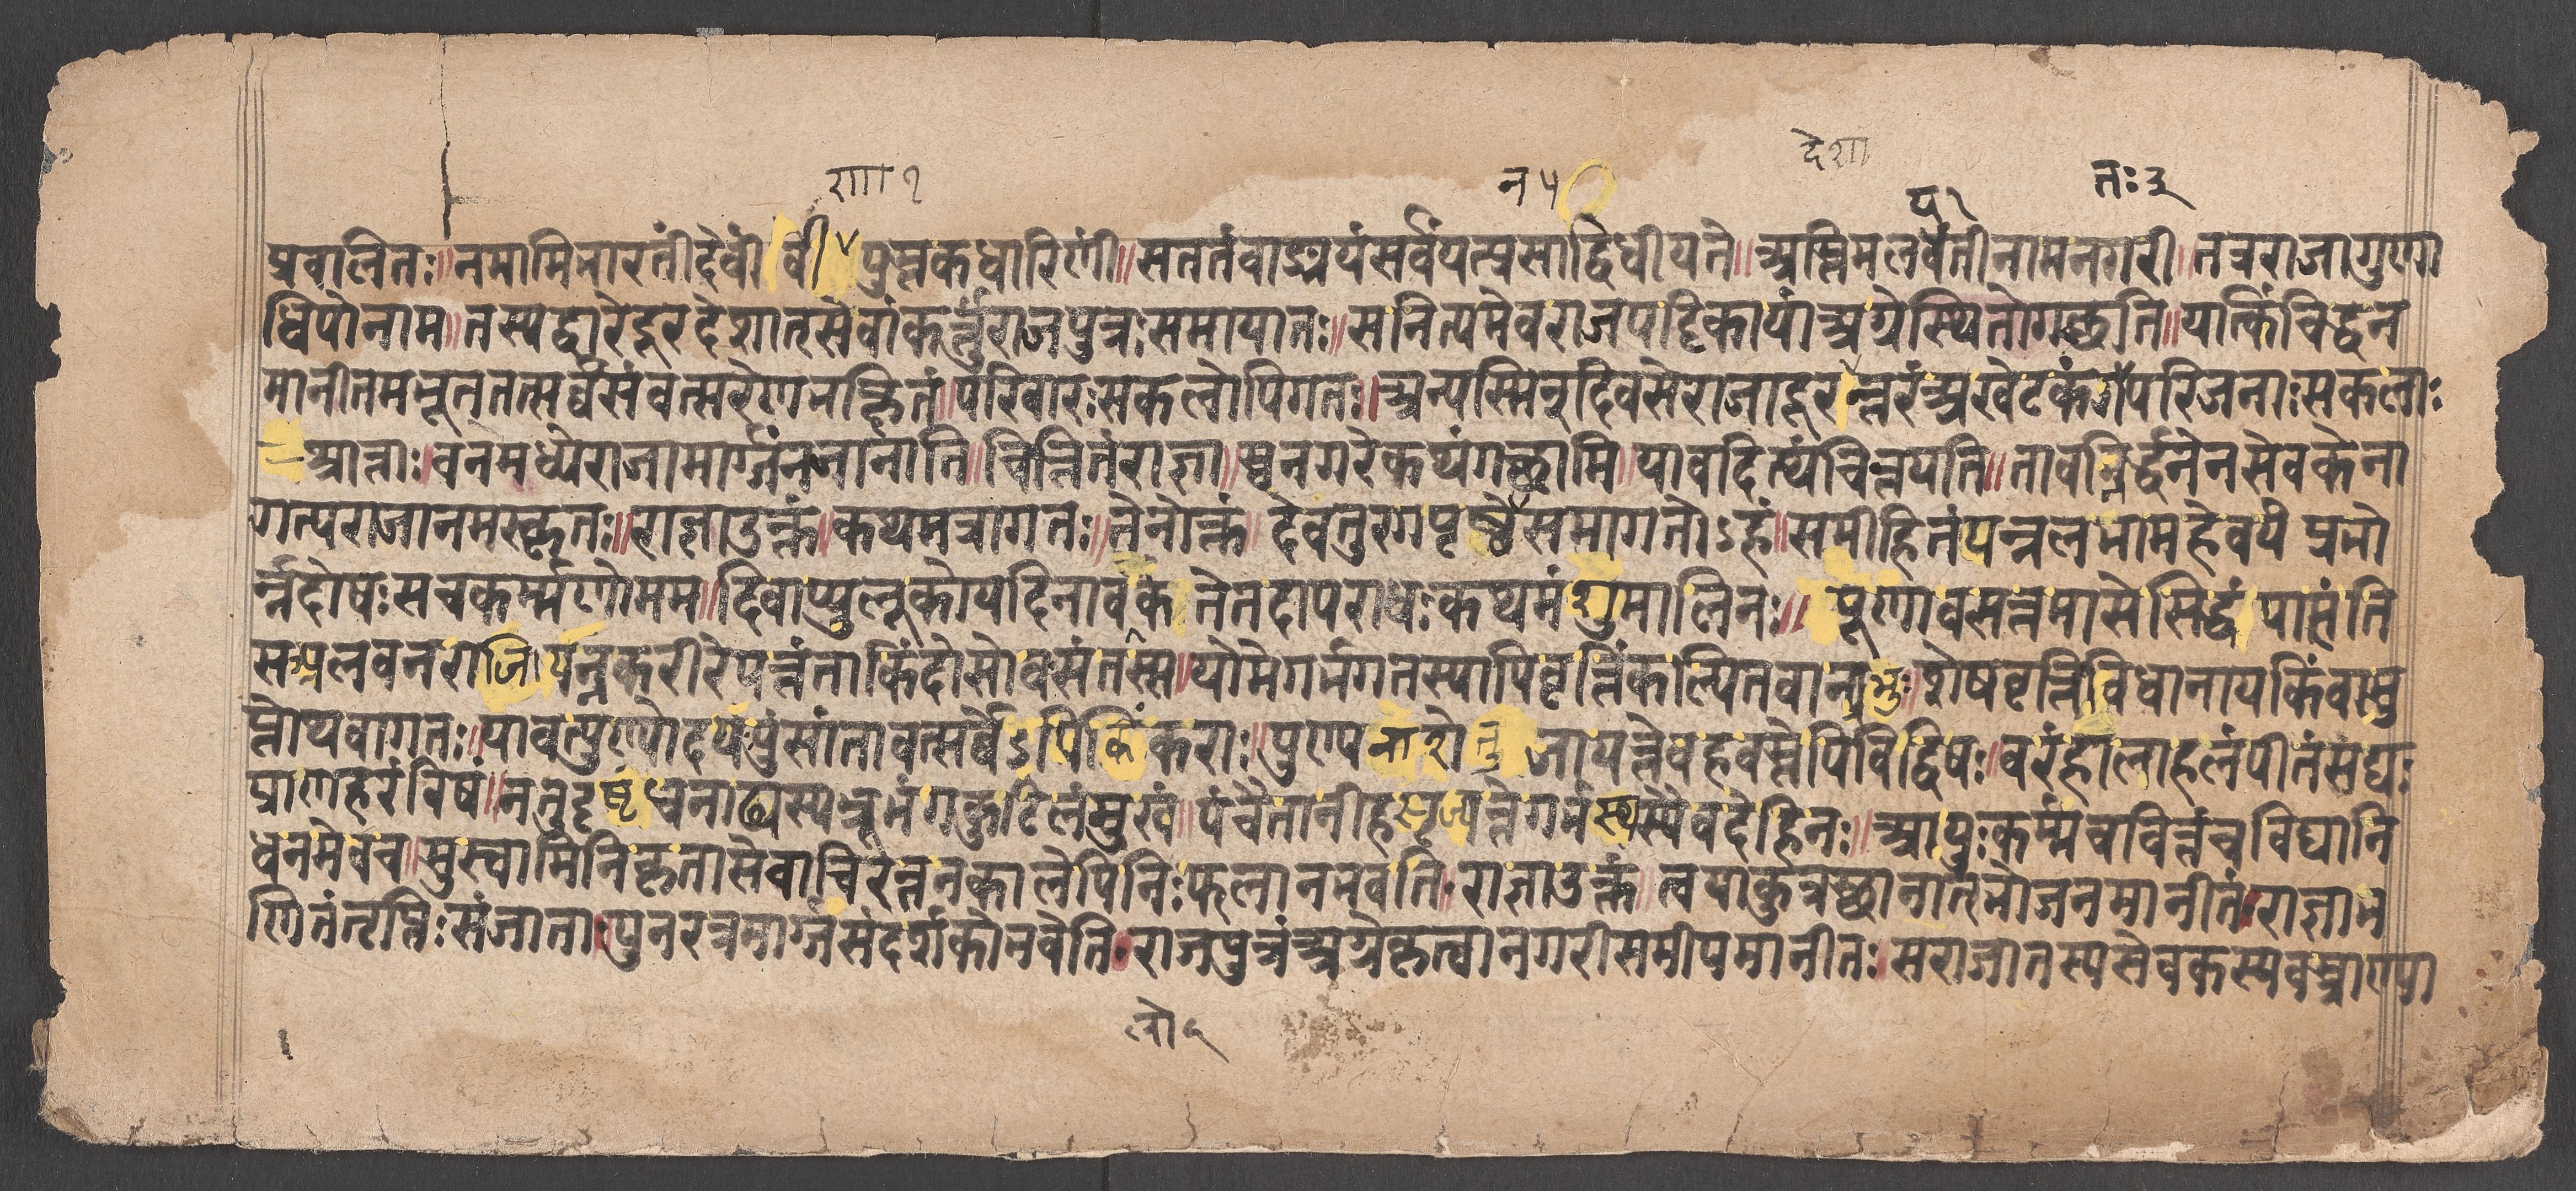 णा १ न ५ देशा य१ तः३
प्रचालितः॥नमामिभारतींदेवीं वी पुस्तकधारिणीं॥सततंवाङ्मयंसर्वंयत्प्रसाद्विधीयते॥अस्तिमलर्वतीनामनगरी॥तत्रराजागुणा
धिपोनाम॥तस्यद्वारेदूरदेशात्सेवांकर्त्तुंराजपुत्रःसमायातः॥सनित्यमेवराजपट्टिकायांअग्रेस्थितोगच्छति॥यत्किंचिद्धन
मानीतमभूत्तत्सर्व्वंसंवत्सरेणभक्षितं॥परिवारःसकलोपिगतः॥अन्यस्मिन्दिवसेराजादूरान्तरंअखेटकंगेपरिजनाःसकलाः
श्रान्ताः॥वनमध्येराजामार्ग्गंनजानाति॥चिन्तितंराज्ञा॥स्वनगरेकथंगच्छामि॥यावदित्थंचिन्तयति॥तावन्निर्द्धनेनसेवकेना
गत्यराजानमस्कृतः॥राज्ञाउक्तं॥कथमत्रागतः॥तेनोक्तं॥देवतुरगपृष्ठेसमागतोऽहं॥समीहितंयन्नलभामहेवयं प्रभो
र्न्नदोषःसचकर्म्मणोमम॥दिवाप्युलूकोयदिनावलोकतेतदापराधःकथमंशुमालिनः॥ पूणावसन्तमासेसिद्धंपासंति
सयलवनराजियन्नकरीरेपन्नंताकिंदोसोवसंतस्स॥योमेगर्भगतस्यापिवृत्तिंकल्पितवान्प्रभुः॥शेषवृत्तिविधानायकिंवासु
प्तोथवागतः॥यावत्पुण्योदयःपुंसांतावत्सर्वेऽपिकिंकराः॥पुण्य जायन्तेवहवस्तेपिविद्विषः॥वरंहालाहलंपीतंसद्यः
प्राणहरंविषं॥नतुदृष्टंधनाढ्यस्यभ्रूभंगकुटिलंमुखं॥पंचैतानीहसृज्यन्तेगर्भस्थस्यैवदेहिनः॥आयुःकर्म्मचवित्तंचविद्यानि
धनमेवच॥सुस्वामिनिकृतासेवाचिरन्तनकालेपिनिःफलानभवति॰राज्ञाउक्तं॥त्वयाकुत्रस्थानात्भोजनमानीतं॰राज्ञाभ
णितंतृप्तिःसंजाता॰पुनरत्रमार्ग्गसंदर्शकोभवेति॰राजपुत्रंअग्रेकृत्वानगरीसमीपमानीतः॥सराजातस्यसेवकस्यवस्त्राण्या